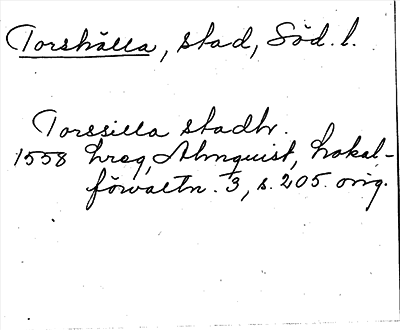 Torshälla, stad, Söd. l.
Torssilla stadbr.
1558 hreg, Almquist, Lokal-
förvaltn. 3, s. 205. orig.